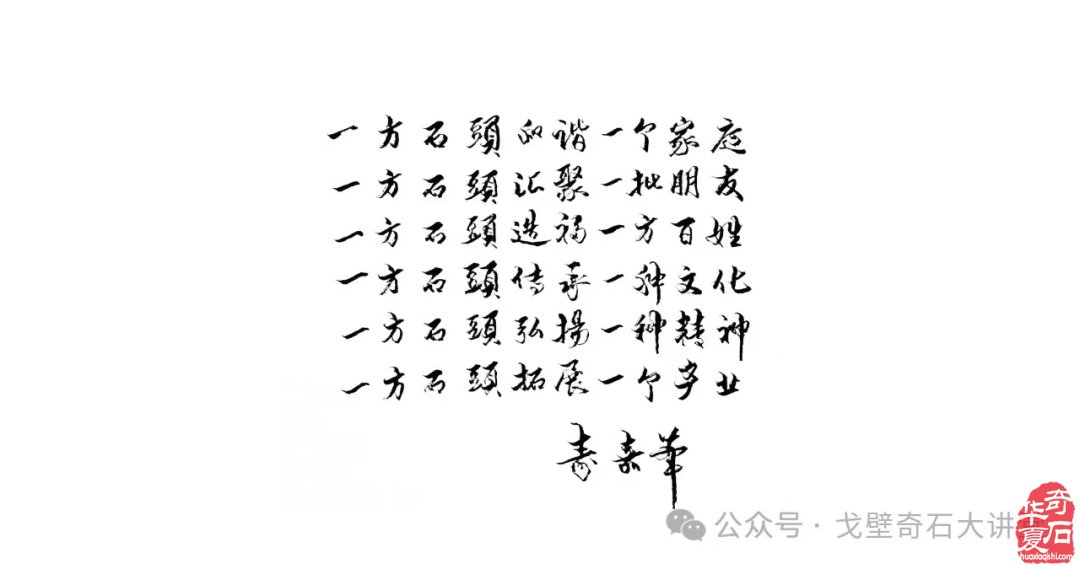 一方石頭和谐一个家庭
一方石頭汇聚一批朋友
一方石頭造福一方百姓
一方石頭传承一种文化
一方石頭弘揚一种精神
一方石頭拓展一个产业
寿嘉華
公众号 · 戈壁奇石大讲
华夏奇石
huaxiaqishi.com